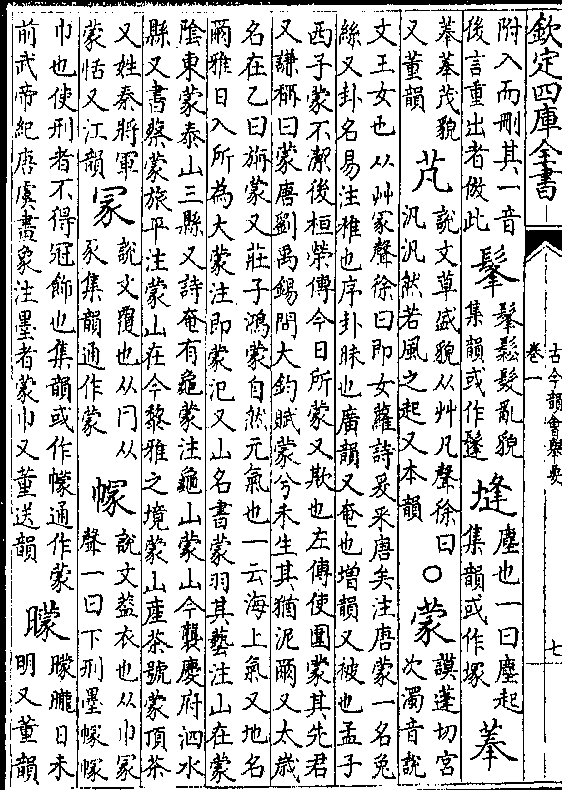 欽定四庫全書
古今韻會舉要
卷一
七
附入而刪其一音
後言重出者倣此
髼
髼鬆髮亂貌
集韻或作鬔
塳
塵也一曰塵起
集韻或作塜
菶
菶菶茂貌
又董韻
芃
說文草盛貌从艸凡聲徐曰
汎汎然若風之起又本韻
○蒙
謨蓬切宮
次濁音說
文王女也从艸冡聲徐曰即女蘿詩爰采唐矣注唐蒙一名兎
絲又卦名易注稚也序卦昧也廣韻又奄也增韻又被也孟子
西子蒙不潔後桓榮傳今日所蒙又欺也左傳使圉蒙其先君
又謙稱曰蒙唐劉禹錫問大鈞賦蒙兮未生其猶泥爾又太歲
名在乙曰旃蒙又莊子鴻蒙自然元氣也一云海上氣又地名
爾雅日入所為大蒙注即蒙汜又山名書蒙羽其藝注山在蒙
隂東蒙泰山三縣又詩奄有龜蒙注龜山蒙山今襲慶府泗水
縣又書蔡蒙旅平注蒙山在今黎雅之境蒙山產茶號蒙頂茶
又姓秦將軍
蒙恬又江韻
冡
說文覆也从冂从
豕集韻通作蒙
幏
說文葢衣也从巾冡
聲一曰下刑墨幏幏
巾也使刑者不得冠飾也集韻或作幪通作蒙
前武帝紀唐虞書象注墨者蒙巾又董送韻
曚
曚曨日未
明又董韻